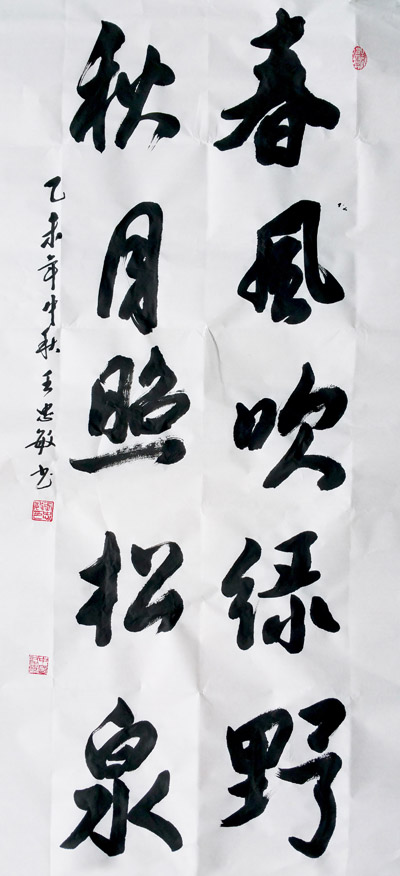 春風吹绿野
秋月照松泉
乙未年中秋王忠敏书